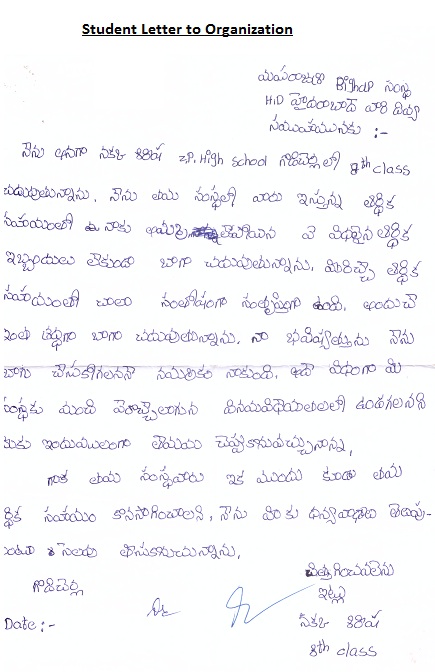 Student Letter to Organization
మహారాజశ్రీ Bighelp సంస్థ
HID హైదరాబాద్ వారి దివ్య
సముఖమునకు :-
నేను అనగా నకిజ శిరీష Z.P. High school గొడిచెర్లలో 8th class
చదువుతున్నాను. నేను తమ సంస్థలో వారు ఇస్తున్న ఆర్థిక
సహాయంతో నాకు ఏ విధమైన ఆర్థిక
ఇబ్బందులు లేకుండా బాగా చదువుతున్నాను. మీరిచ్చే ఆర్థిక
సహాయంతో చాలా సంతోషంగా సంతృప్తిగా ఉంది. అందుచే
ఇంత చక్కగా బాగా చదువుతున్నాను. నా భవిష్యత్తును నేను
బాగు చేసుకోగలననే నమ్మకం నాకుంది. ఇదే విధంగా మీ
సంస్థకు మంచి పేరొచ్చేలాగున వినయవిధేయతలతో ఉండగలనని
మీకు ఇందుమూలంగా తెలియ చెప్పుకొనుచున్నాను.
గనుక తమ సంస్థవారు ఇక ముందు కూడా తమ
ఆర్థిక సహాయం కొనసాగించాలని, నేను మీకు ధన్యవాదాలు తెలుపు-
కుంటూ సెలవు తీసుకొనుచున్నాను.
చిత్తగించవలెను
గొడిచెర్ల
ఇట్లు
Date :-
శిరీష
8th class